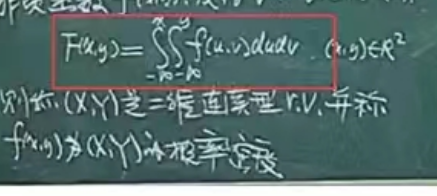 F(x,y)=∫_{-∞}^{x}∫_{-∞}^{y}f(u,v)dudv (x,y)∈R²
则称(X,Y)是二维连续型r.v.并称
f(x,y)为(X,Y)的概率密度